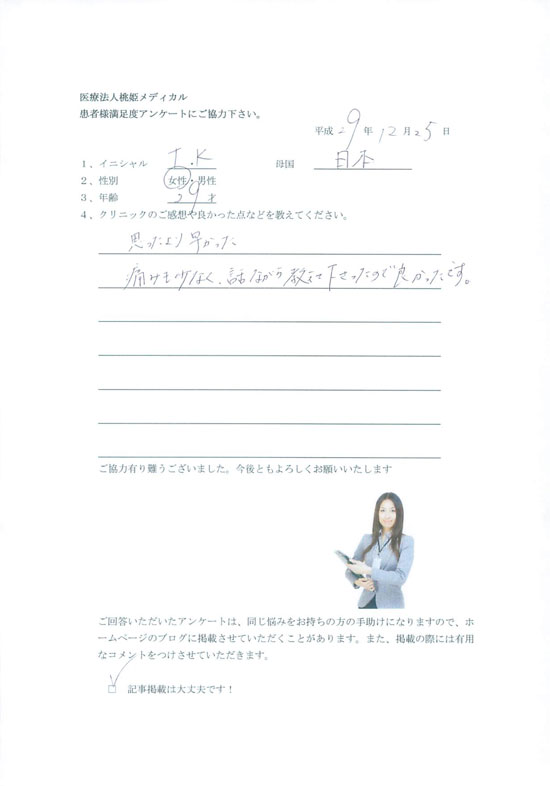 医療法人桃姫メディカル
患者様満足度アンケートにご協力下さい。
平成 29 年 12 月 25 日
1、イニシャル T.K 母国 日本
2、性別 女性・男性
3、年齢 29才
4、クリニックのご感想や良かった点などを教えてください。
思ったより早かった
痛みも少なく、話ながら教えて下さったので良かったです。
ご協力有り難うございました。今後ともよろしくお願いいたします
ご回答いただいたアンケートは、同じ悩みをお持ちの方の手助けになりますので、ホ
ームページのブログに掲載させていただくことがあります。また、掲載の際には有用
なコメントをつけさせていただきます。
☑ 記事掲載は大丈夫です！